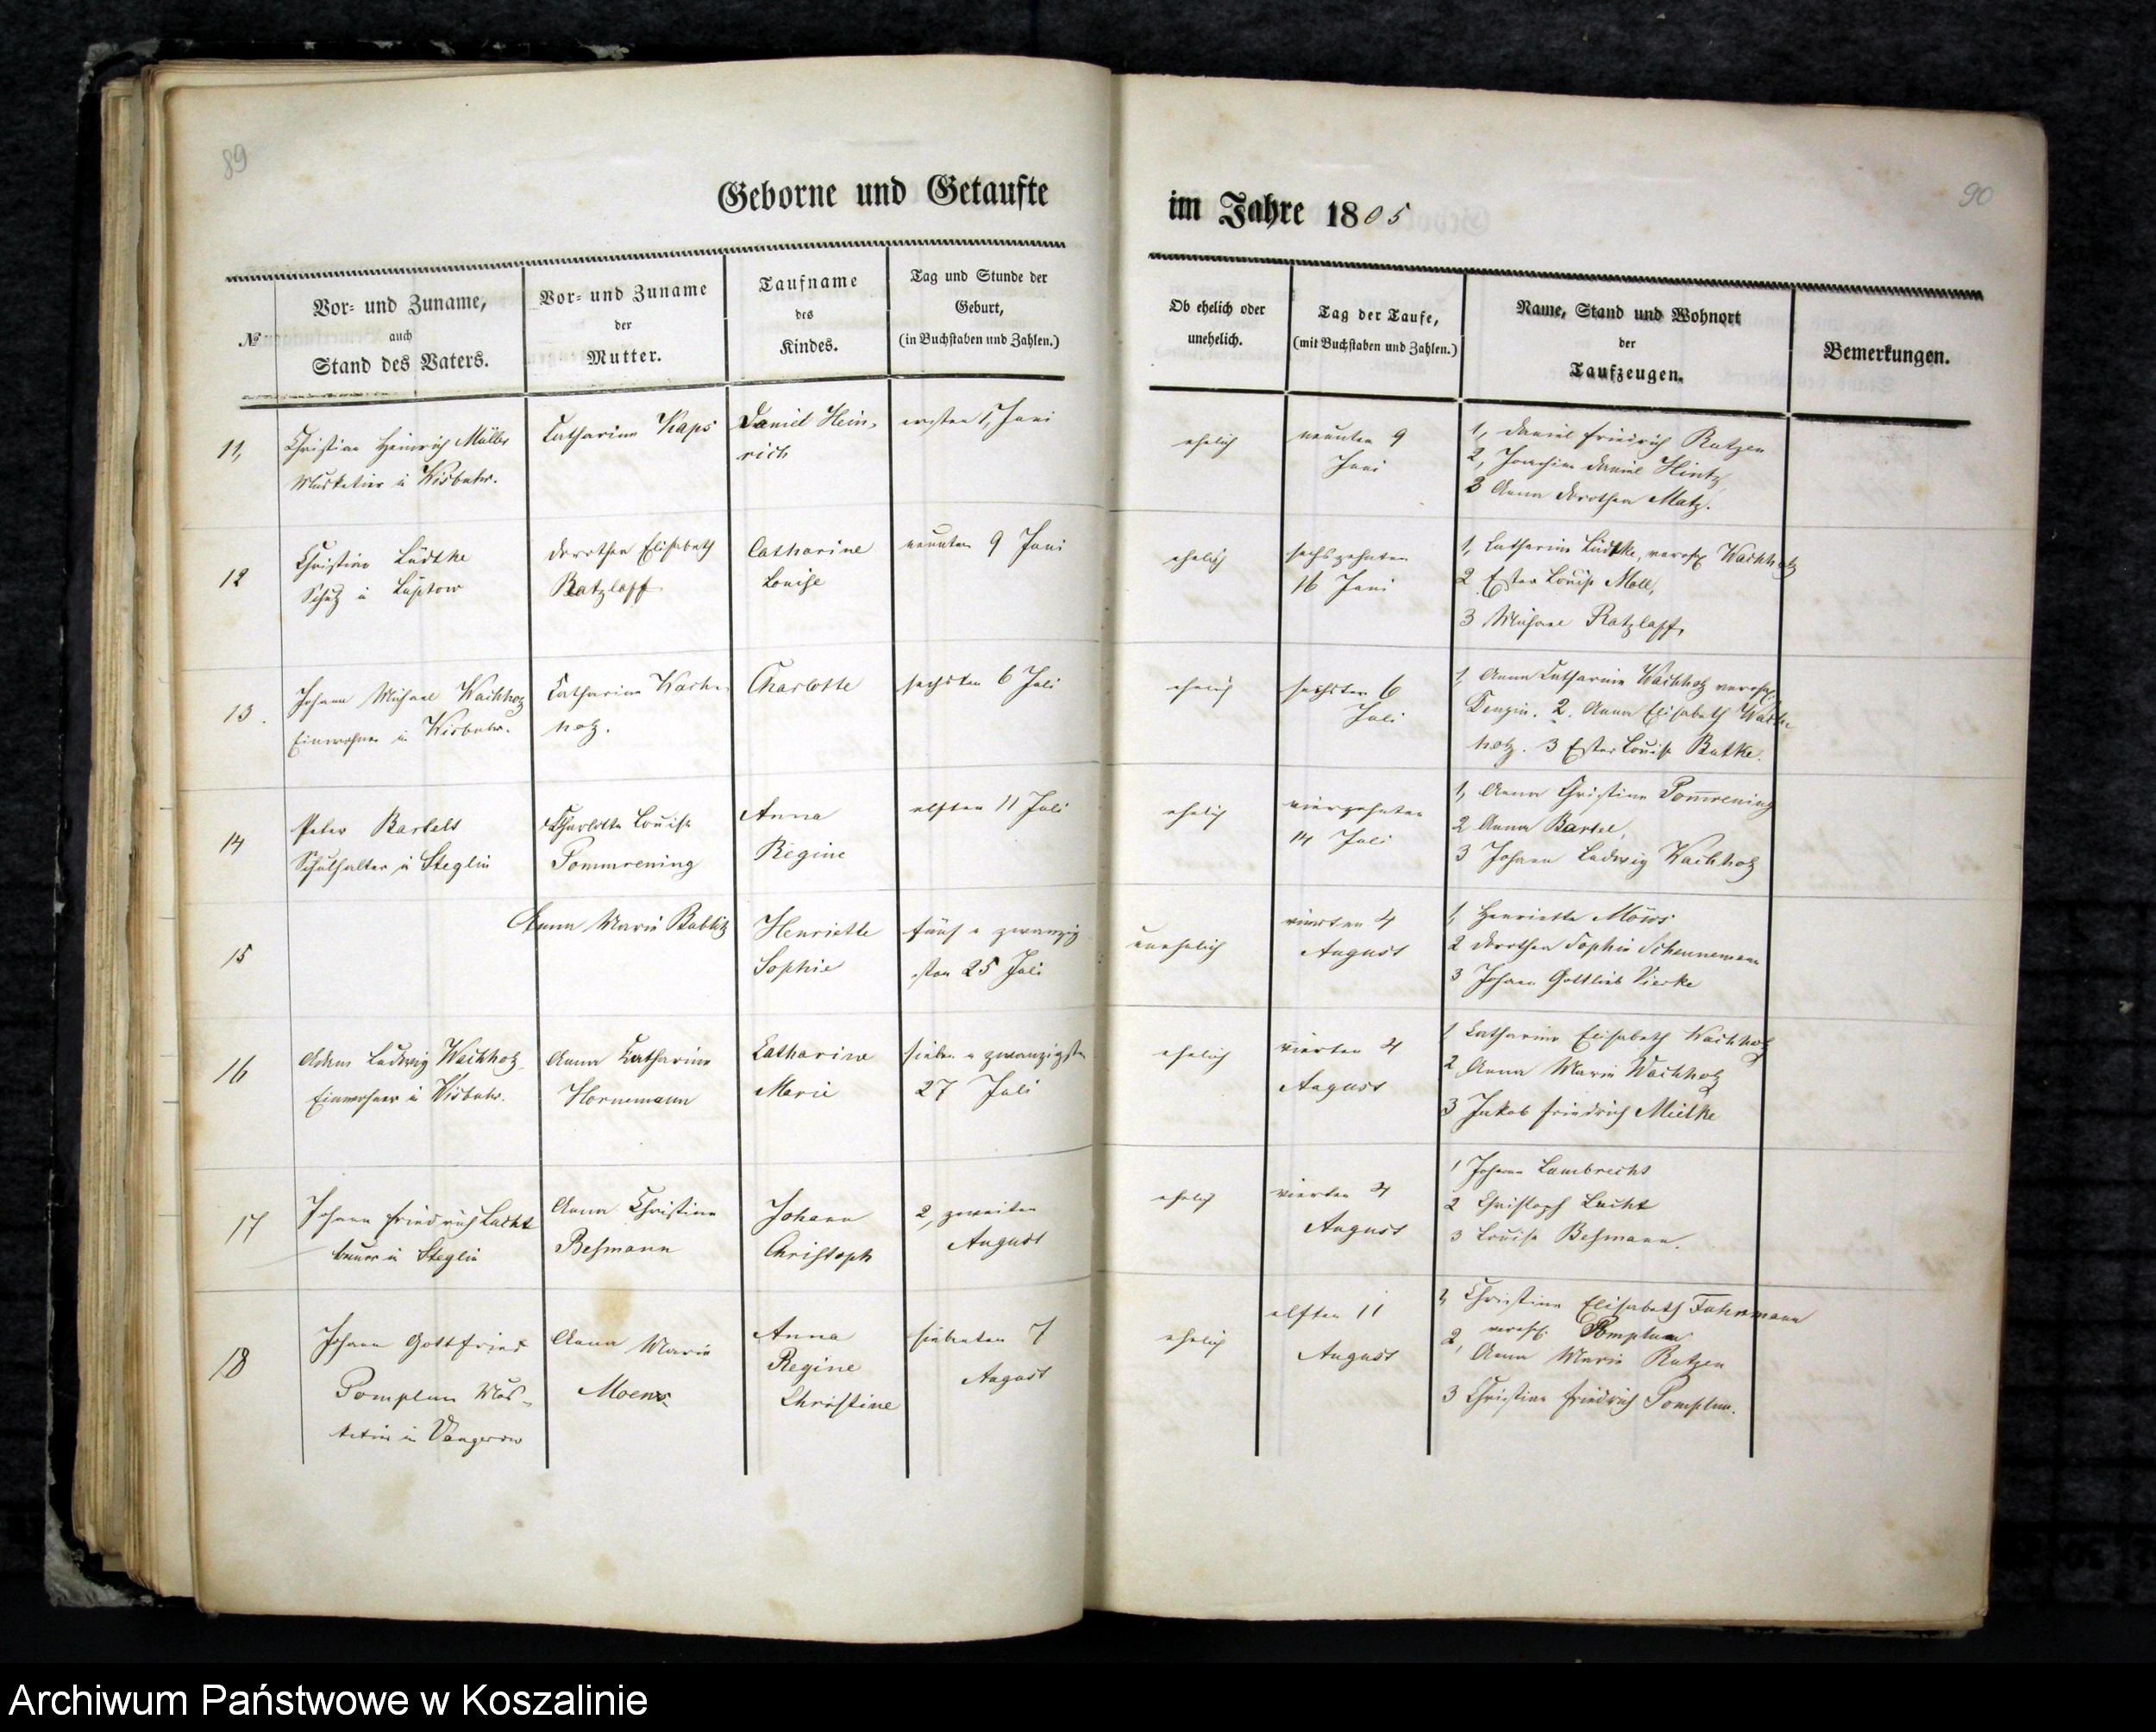 89
Geborne und Getaufte
№
Vor- und Zuname,
auch
Stand des Vaters.
Vor- und Zuname
der
Mutter.
Taufname
des
Kindes.
Tag und Stunde der
Geburt,
(in Buchstaben und Zahlen.)
11,
Christian Heinrich Müller
Musketier in Wisbuhr.
Catharine Kaps
Daniel Hein-
rich
ersten 1, Juni
12
Christian Lüdtke
Schulz in Lüptow
Dorothea Elisabeth
Ratzlaff
Catharine
Louise
neunten 9 Juni
13.
Johann Michael Wachholz
Einwohner in Wisbuhr.
Catharine Wach-
holz.
Charlotte
sechsten 6 Juli
14
Peter Bartels
Schulhalter in Steglin
Charlotte Louise
Pommrening
Anna
Regine
elften 11 Juli
15
Anna Marie Bublitz
Henriette
Sophie
fünf u zwanzig
sten 25 Juli
16
Adam Ludwig Wachholz
Einwohner in Wisbuhr.
Anna Catharine
Hornemann
Catharine
Marie
sieben u zwanzigsten
27 Juli
17
Johann Friedrich Lucht
Bauer in Steglin
Anna Christine
Beßmann
Johann
Christoph
2, zweiten
August
18
Johann Gottfried
Pomplun Mus-
ketier in Vangerow
Anna Marie
Moews.
Anna
Regine
Christine
siebenten 7
August
90
im Jahre 1805
Ob ehelich oder
unehelich.
Tag der Taufe,
(mit Buchstaben und Zahlen.)
Name, Stand und Wohnort
der
Taufzeugen.
Bemerkungen.
ehelich
neunten 9
Juni
1, Daniel Friedrich Rutzen
2, Joachim Daniel Hintz
3 Anna Dorothea Matz.
ehelich
sechszehnten
16 Juni
1, Catharine Lüdtke, verehl. Wachholz
2 Ester Louise Moll,
3 Michael Ratzlaff,
ehelich
sechsten 6
Juli
1, Anna Catharine Wachholz verehl.
Denzin. 2. Anna Elisabeth Wach-
holz. 3 Ester Louise Butke.
ehelich
vierzehnten
14 Juli
1, Anna Christine Pom̅rening
2 Anna Bartel,
3 Johann Ludwig Wachholz
unehelich
vierten 4
August
1, Henriette Möws
2 Dorothea Sophie Schünnemann
3 Johann Gottlieb Vierke
ehelich
vierten 4
August
1 Catharine Elisabeth Wachholz
2 Anna Marie Wachholz
3 Jakob Friedrich Mielke
ehelich
vierten 4
August
1 Johann Lambrecht
2 Christoph Lucht
3 Louise Beßmann.
ehelich
elften 11
August
1, Christine Elisabeth Fuhrmann
verehl. Pomplun
2, Anna Marie Rutzen
3 Christian Friedrich Pomplun.
Archiwum Państwowe w Koszalinie